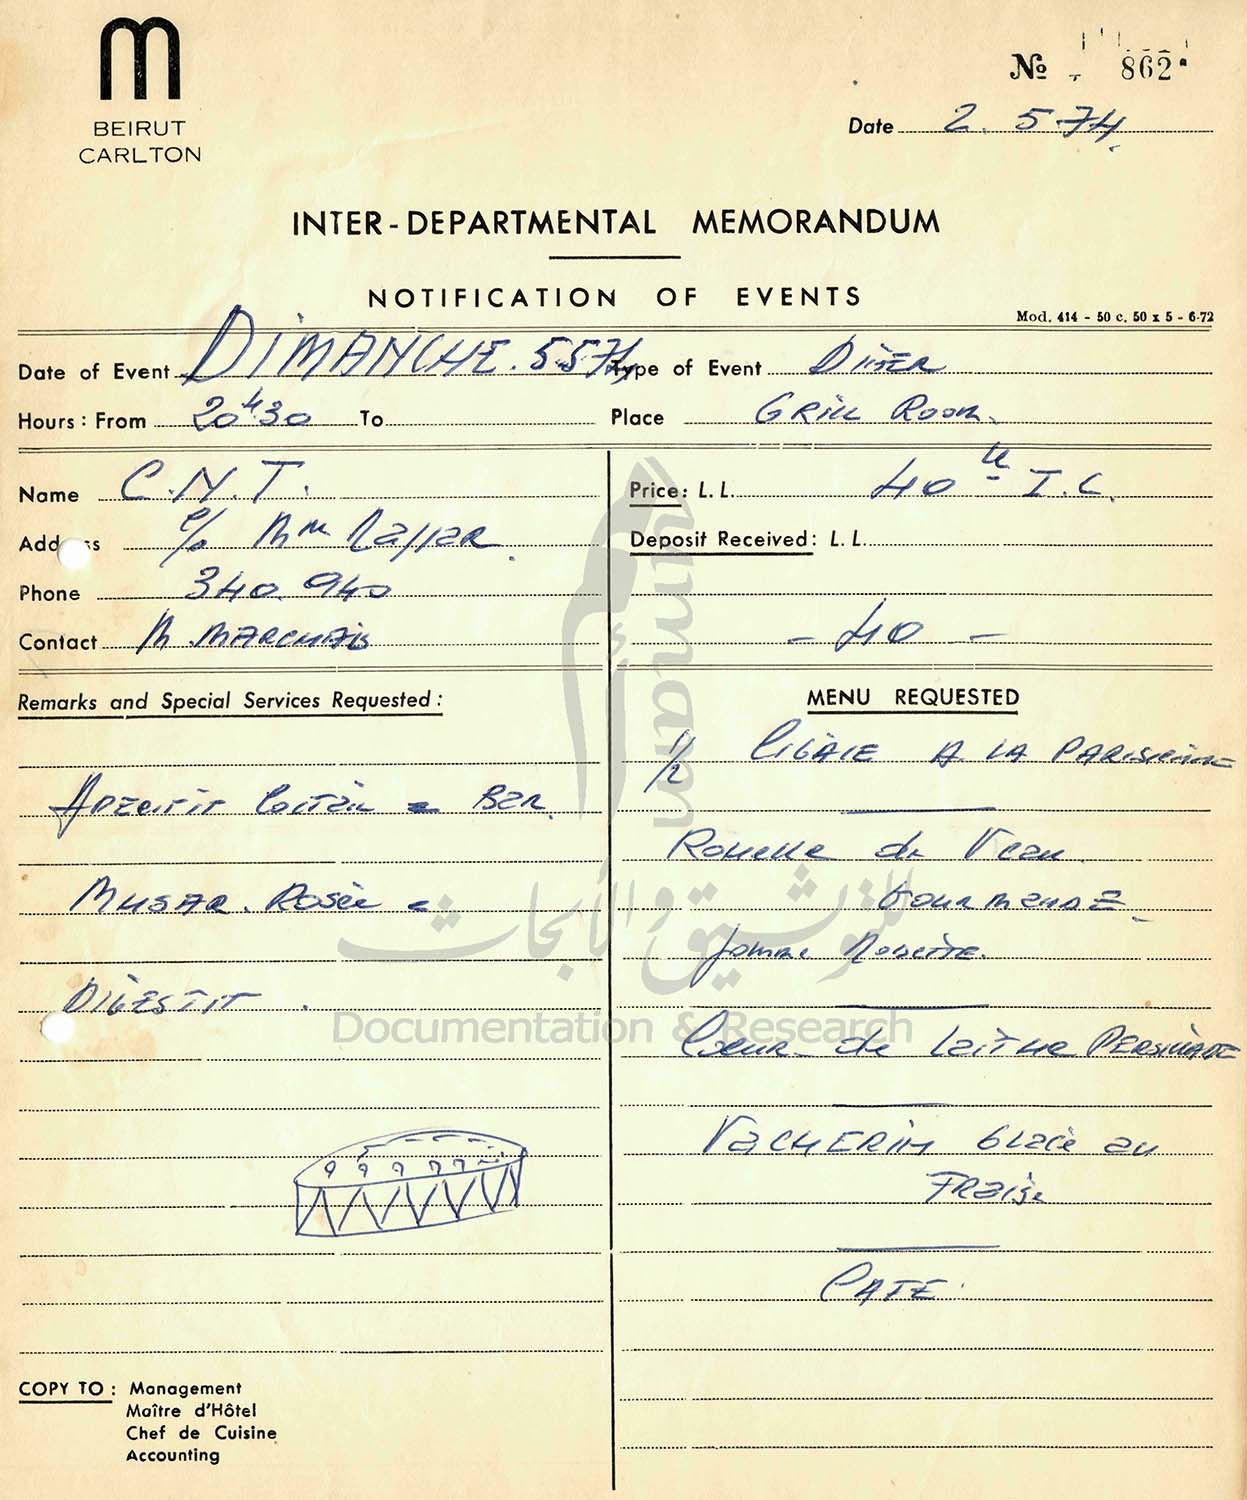 BEIRUT
CARLTON
No 862
Date 2.5.74.
INTER-DEPARTMENTAL MEMORANDUM
NOTIFICATION OF EVENTS
Mod. 414 - 50 c. 50 x 5 - 6-72
Date of Event DIMANCHE.5.5.74 Type of Event DINER
Hours: From 20H30 To Place GRILL ROOM.
Name C.N.T. Price: L.L. 40 I.C.
Address c/o Mme Deposit Received: L.L.
Phone 340.940
Contact M. MARCHAIS - 40 -
Remarks and Special Services Requested:
APERITIF Bar.
MUSAR. Rosée
DIGESTIF.
MENU REQUESTED
1/2 CIGALE A LA PARISIENNE
Rouelle de Veau
GOURMANDE
Pomme Noisette.
Coeur de Laitue PERSILLADE
VACHERIN Glacé au
FRaise
CAFE.
COPY TO: Management
Maître d'Hôtel
Chef de Cuisine
Accounting
umam
للتوثيق والأبحاث
Documentation & Research